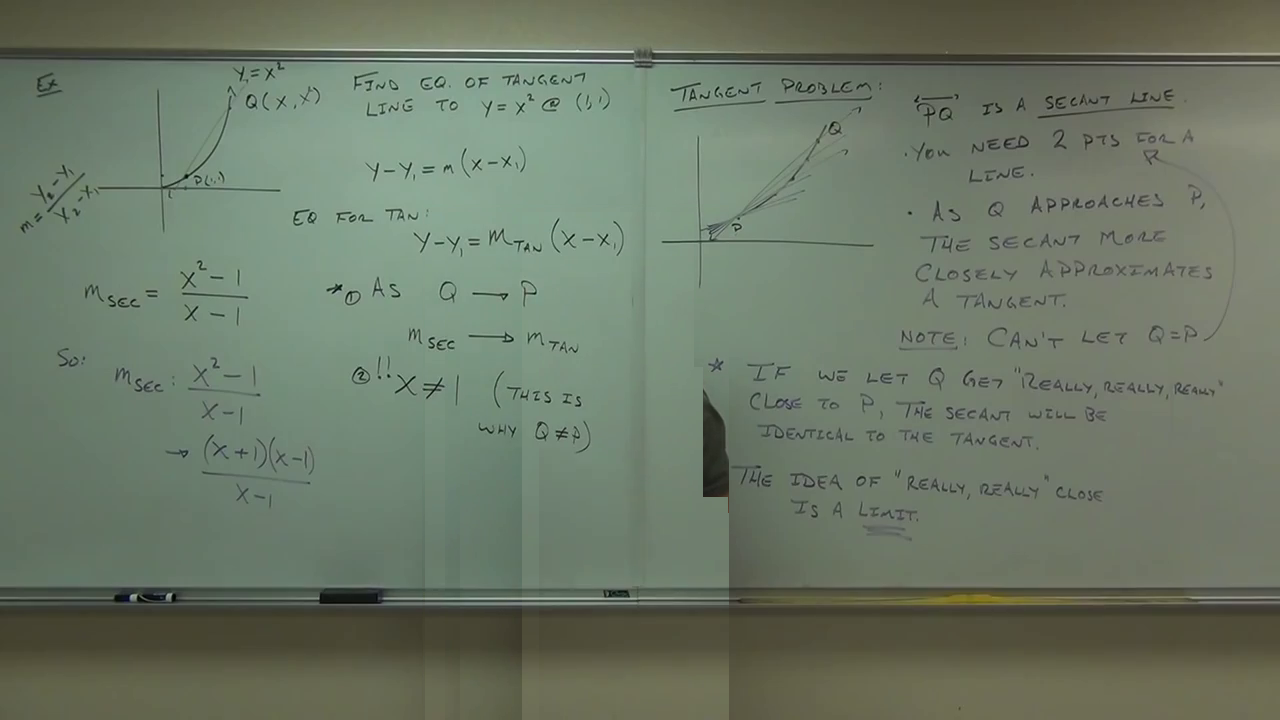 Ex
y=x²
Q(x, x²)
P(1,1)
m= y₂-y₁ / x₂-x₁
m SEC = x²-1 / x-1
So:
m SEC : x²-1 / x-1
→ (x+1)(x-1) / x-1
FIND EQ. OF TANGENT
LINE TO y=x² @ (1,1)
y-y₁=m(x-x₁)
EQ FOR TAN:
y-y₁=m TAN (x-x₁)
* ① AS Q → P
m SEC → m TAN
② !! x≠1 (THIS IS
WHY Q≠P)
TANGENT PROBLEM:
Q
P
PQ IS A SECANT LINE.
· YOU NEED 2 PTS FOR A
LINE.
· AS Q APPROACHES P,
THE SECANT MORE
CLOSELY APPROXIMATES
A TANGENT.
NOTE: CAN'T LET Q=P
* IF WE LET Q GET "REALLY, REALLY, REALLY"
CLOSE TO P, THE SECANT WILL BE
IDENTICAL TO THE TANGENT.
THE IDEA OF "REALLY, REALLY" CLOSE
IS A LIMIT.